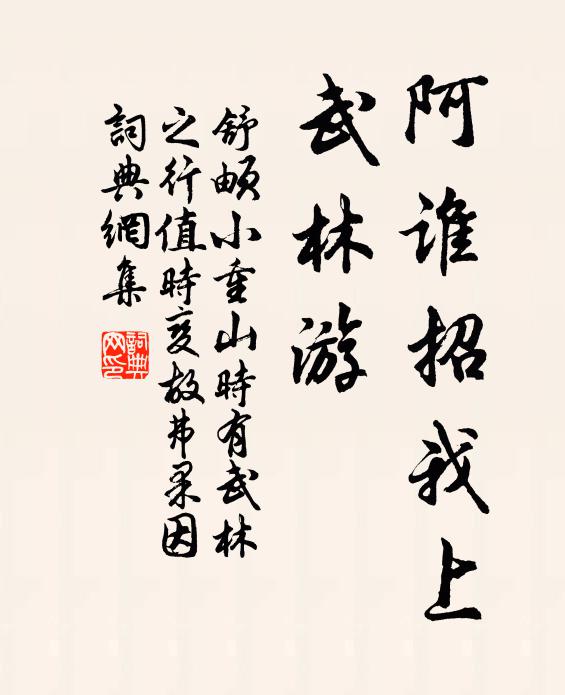 阿谁招我上
武林游
舒頔小重山時有武林
之行值時变故弗果因
詞典網集
詞典
网印